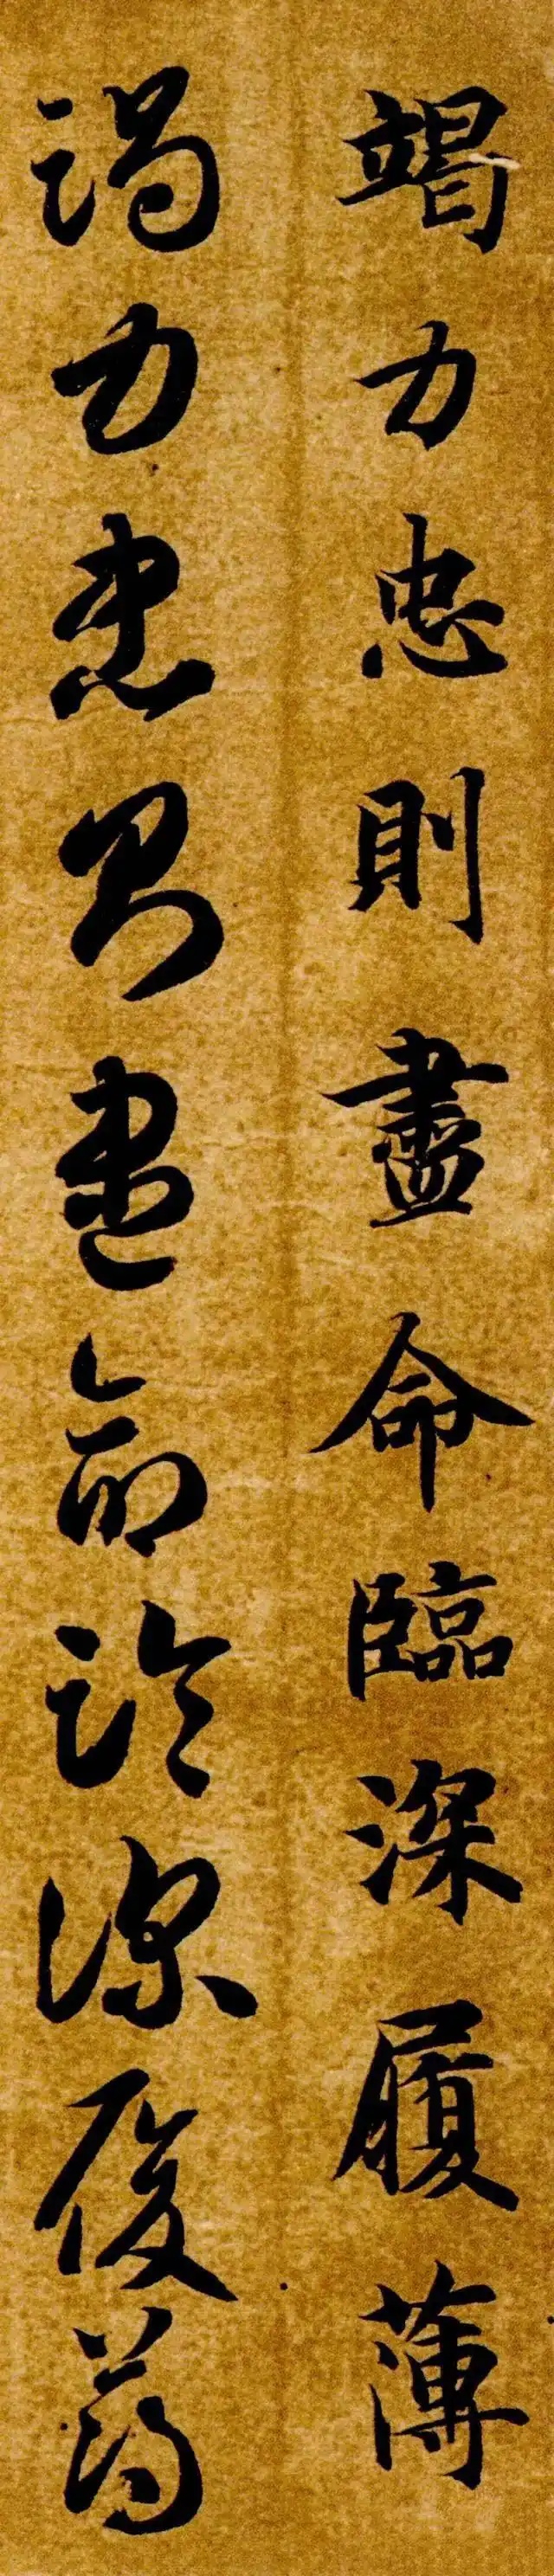 竭力忠則盡命臨深履薄
竭力忠則盡命臨深履薄